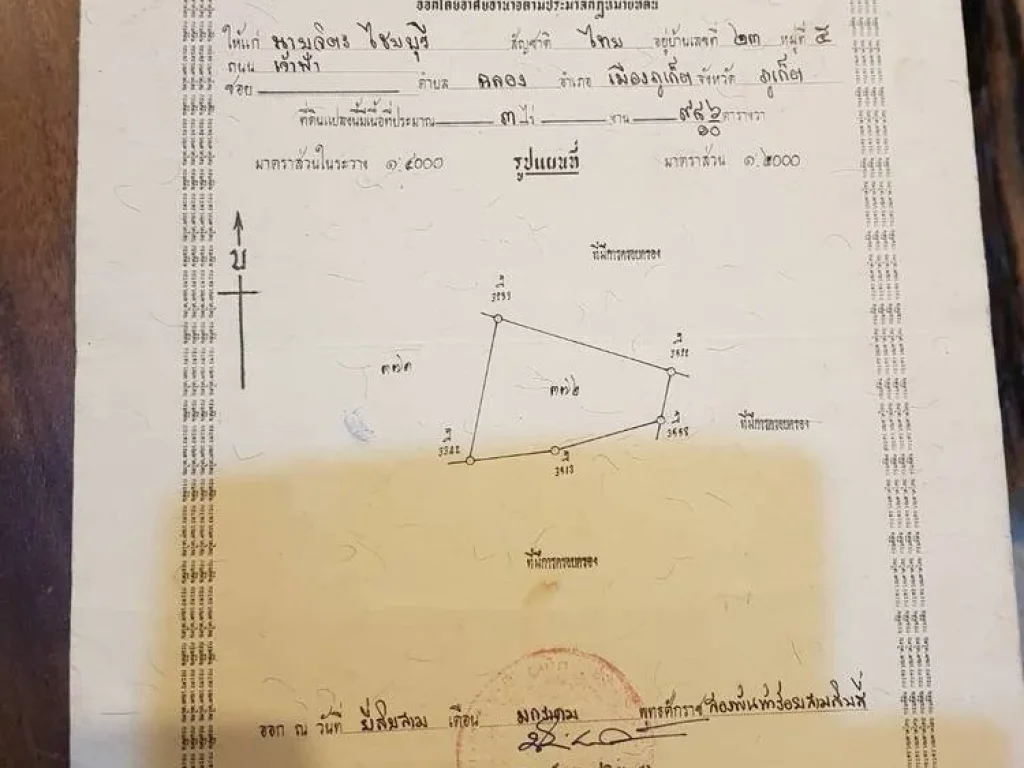 ออกโดยอาศัยอำนาจตามประมวลกฎหมายที่ดิน
ให้แก่ นายจิตร ไชยบุรี สัญชาติ ไทย อยู่บ้านเลขที่ ๒๓ หมู่ที่ ๕
ถนน เจ้าฟ้า
ซอย ตำบล ฉลอง อำเภอ เมืองภูเก็ต จังหวัด ภูเก็ต
ที่ดินแปลงนี้มีเนื้อที่ประมาณ ๓ ไร่ งาน ตารางวา
มาตราส่วนในระวาง ๑:๔๐๐๐ รูปแผนที่ มาตราส่วน ๑:๒๐๐๐
น
ที่มีการครอบครอง
๓๗๒
ที่มีการครอบครอง
ที่มีการครอบครอง
ออก ณ วันที่ ยี่สิบสาม เดือน มกราคม พุทธศักราช สองพันห้าร้อยสามสิบสี่